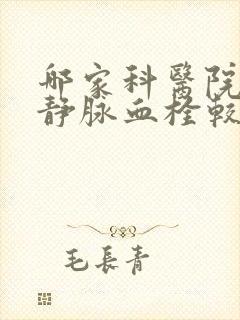 邮家科醫院
静脉血栓較
毛長青